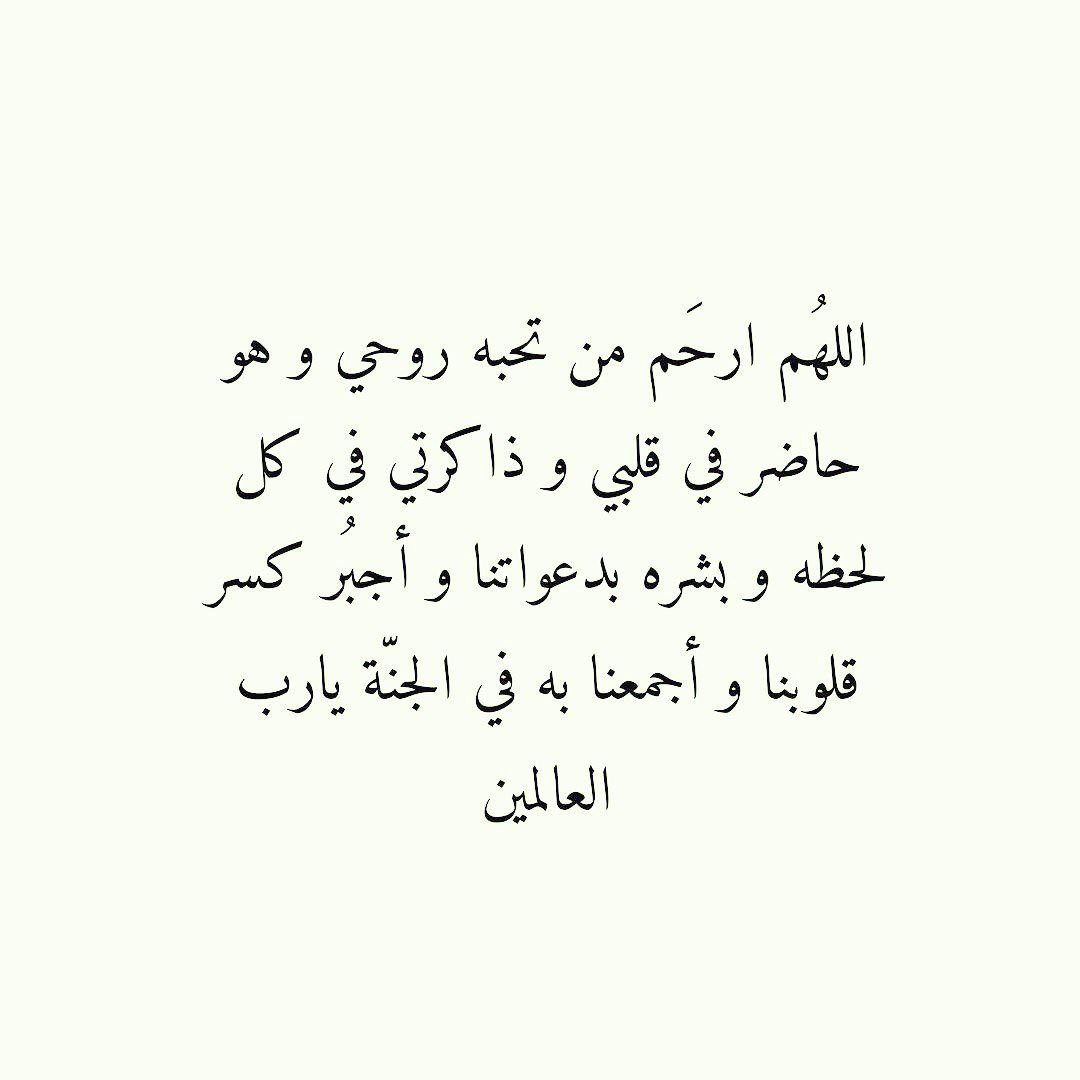 اللهُم ارحَم من تحبه روحي و هو
حاضر في قلبي و ذاكرتي في كل
لحظه و بشره بدعواتنا و أجبُر كسر
قلوبنا و أجمعنا به في الجنّة يارب
العالمين